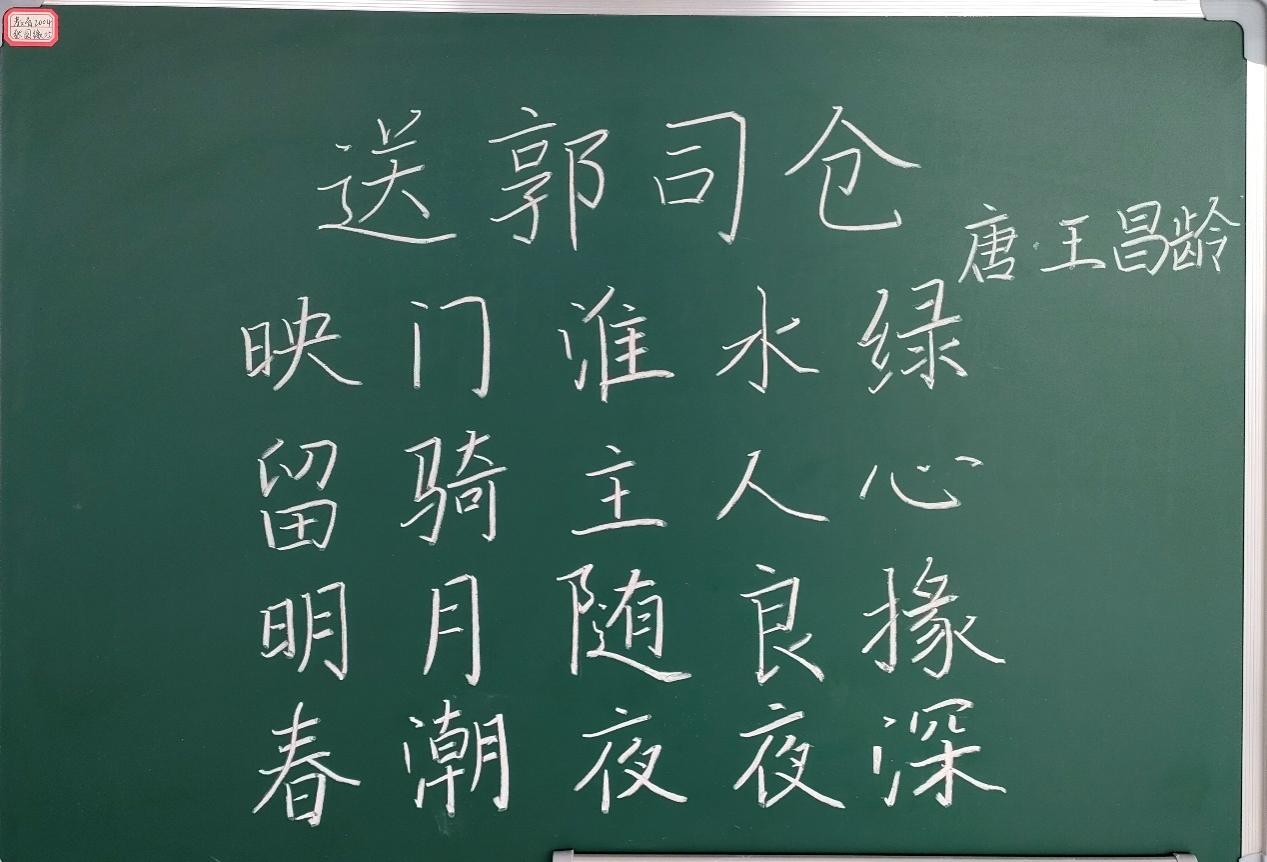 送郭司仓
唐·王昌龄
映门淮水绿
留骑主人心
明月随良掾
春潮夜夜深